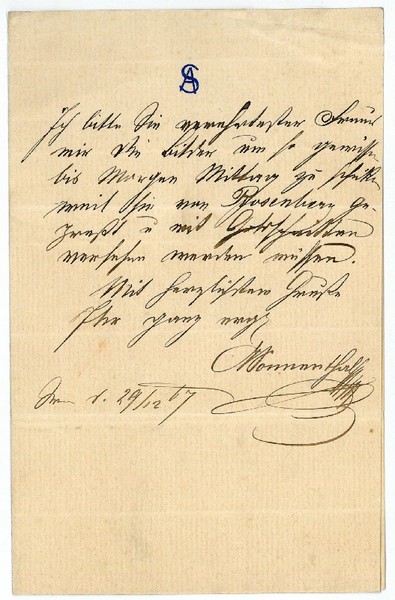 AS
Ich bitte Sie verehrtester Freund
mir die Bilder um so gewisser
bis Morgen Mittag zu schicken
weil sie von Rosenberg ge-
presst u mit
versehen werden müssen.
Mit herzlichstem Gruße
Ihr ganz erg
Sonnenthal
d. 29/12 67